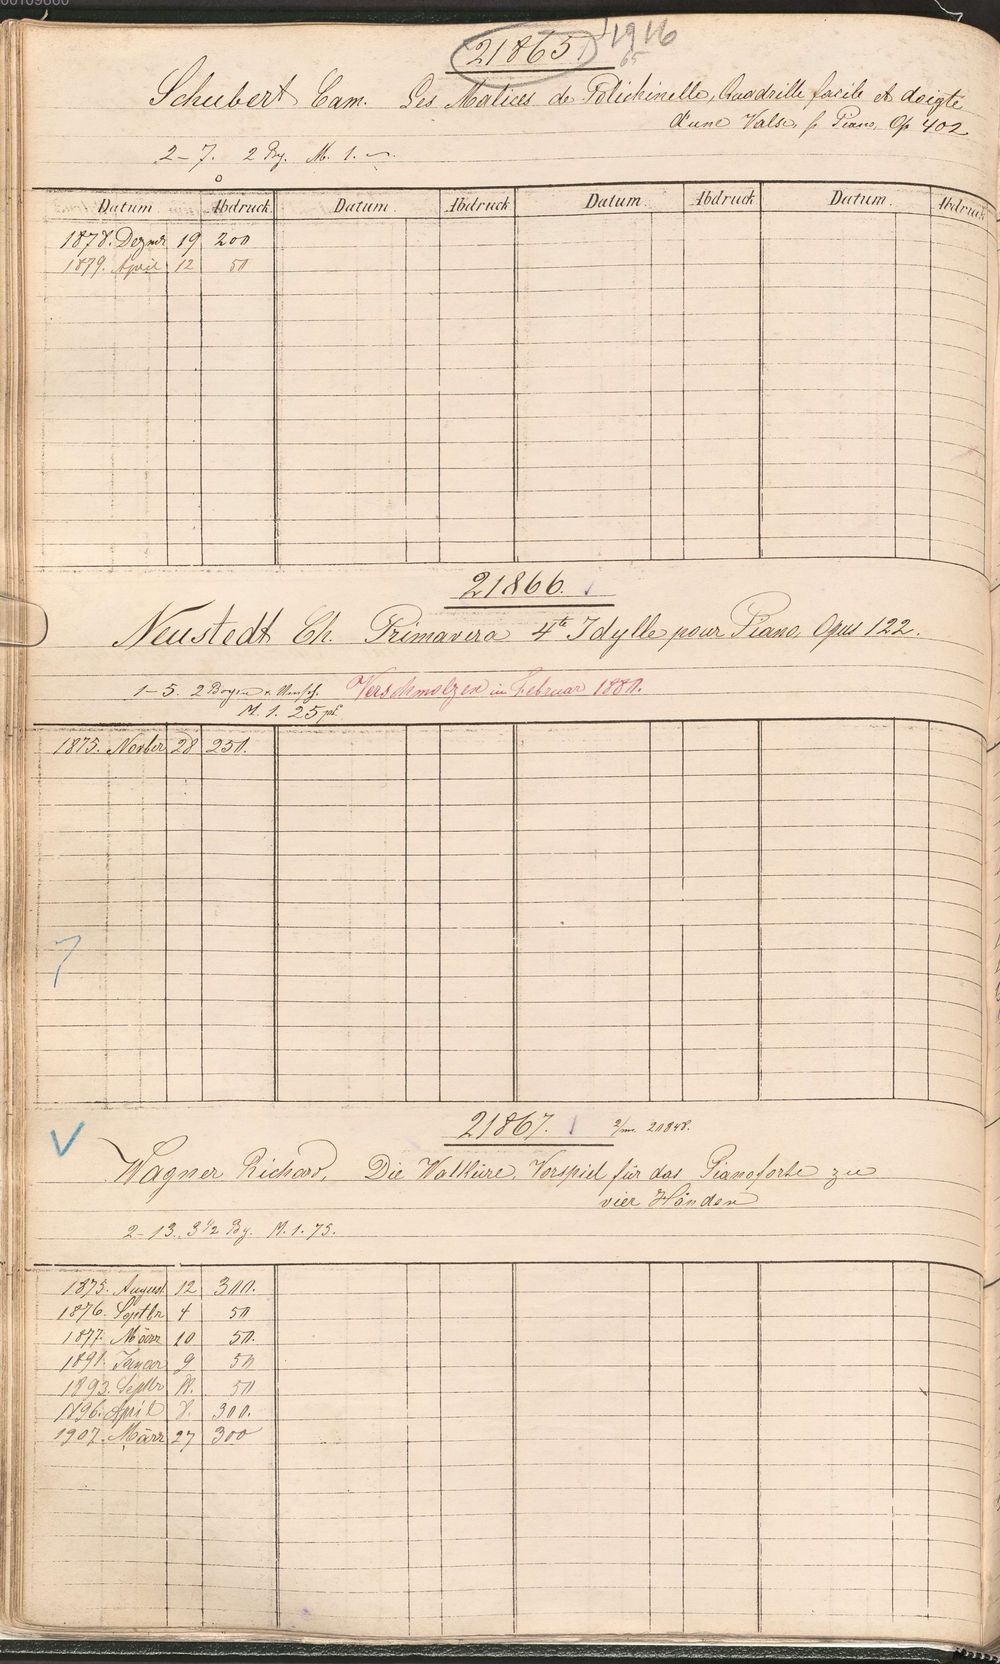 21865. 1916
65
Schubert Cam. Les Malices de Polichinelle, Quadrille facile et doigté
d'une Valse, p Piano, Op 402
2-7. 2 Bg. M. 1. —.
Datum Abdruck Datum. Abdruck Datum. Abdruck Datum. Abdruck
1878. Dezmr 19 200
1879. April 12 50
21866.
Neustedt Ch. Primavera 4te Idylle pour Piano, Opus 122.
1-5. 2 Bogen Verschmolzen in Februar 1880.
M. 1. 25
1875. Novber 28 250.
21867. 21848.
Wagner Richard, Die Walküre, Vorspiel für das Pianoforte zu
vier Händen
2-13. 3 1/2 Bg. M. 1. 75.
1875. August 12 300.
1876. Septbr 4 50
1877. März 10 50.
1891. Januar 9 50
1893. Septbr 50
1896. April 8. 300.
1907. März 27 300